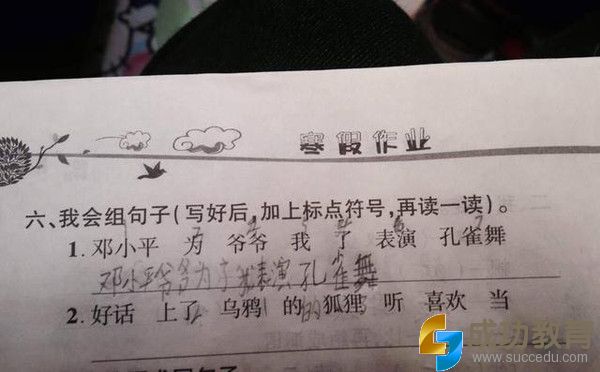 寒假作业
六、我会组句子(写好后,加上标点符号,再读一读)。
1. 邓小平 为 爷爷 我 了 表演 孔雀舞
邓小平爷爷为了我表演孔雀舞
2. 好话 上了 乌鸦 的 狐狸 听 喜欢 当
成功教育
www.succedu.com